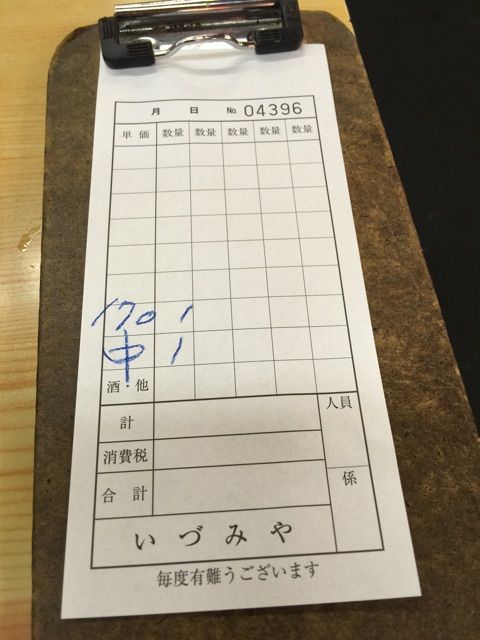 月 日 № 04396
単価 数量 数量 数量 数量 数量
170 1
中 1
酒・他
人員
計
消費税
係
合計
いづみや
毎度有難うございます